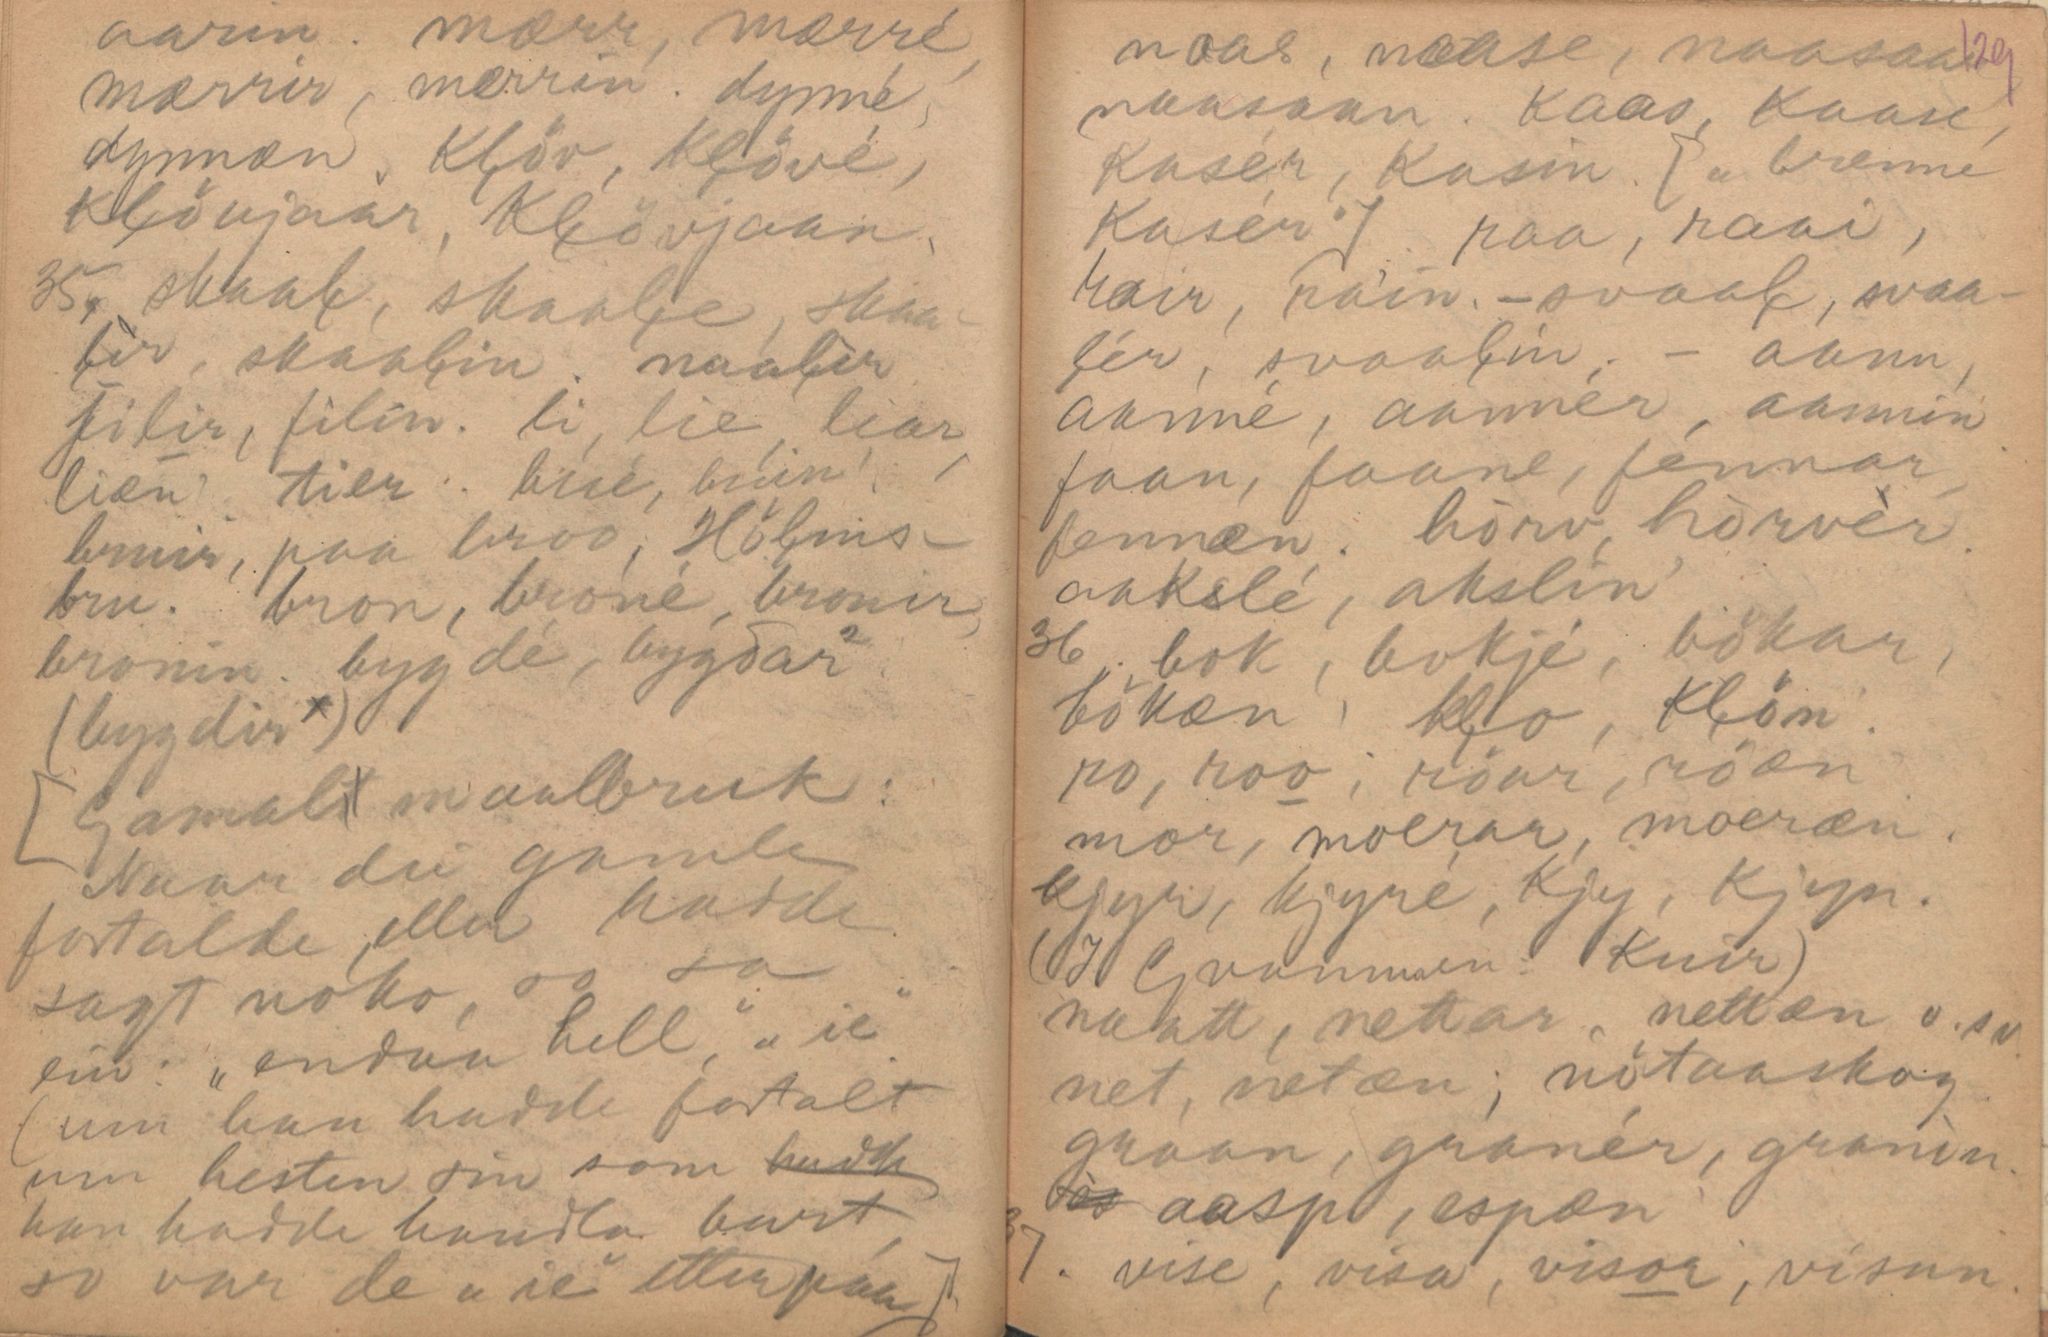 aarin. mærr, mærré,
mærrir, mærrin. dynné,
dynnæn. Kļöv, kļövé,
Kļövjaar, Kļövjaan.
35. skaaļ, skaaļe, skaa-
ļir, skaaļin. naaļir
filir, filin. li, lie, liar,
liæn. tier. bruè, bruin,
bruir, paa broo, Höļms-
bru. bron, broné, bronir,
bronin. bygdé, bygdar²
(bygdir ˣ)
[Gamalt maalbruk:
Naar dei gamle
fortalde, eller hadde
sagt noko, so sa
ein: „endaa hell," „ie"
(um han hadde fortalt
um hesten sin som hadde
han hadde handla burt,
so var de „ie" etterpaa)].
129
naas, naase, naasaar
naasaan. Kaas, Kaasé,
Kasér, Kasin. [„brenné
Kasér"] raa, raai,
rair, ráin. – svaaļ, svaa-
ļér, svaaļin. – aann,
aanné, aannér, aannin.
faan, faane, fennar,
fennæn. hòrv, hòrvèr.
aakslé, akslin
36. bok, bokjé, bökar,
bökæn, kļo, Kļön.
ro, roo, röar, röæn
mor, moerar, moeræn.
Kjyr, kjyré, kjy, Kjyn.
(I Gvammen: Kuir)
naatt, nettar, nettæn o.s.v.
net, netæn; nötaaskog
graan, granér, granin.
aasp, espæn
37. vise, visa, visor, visun.